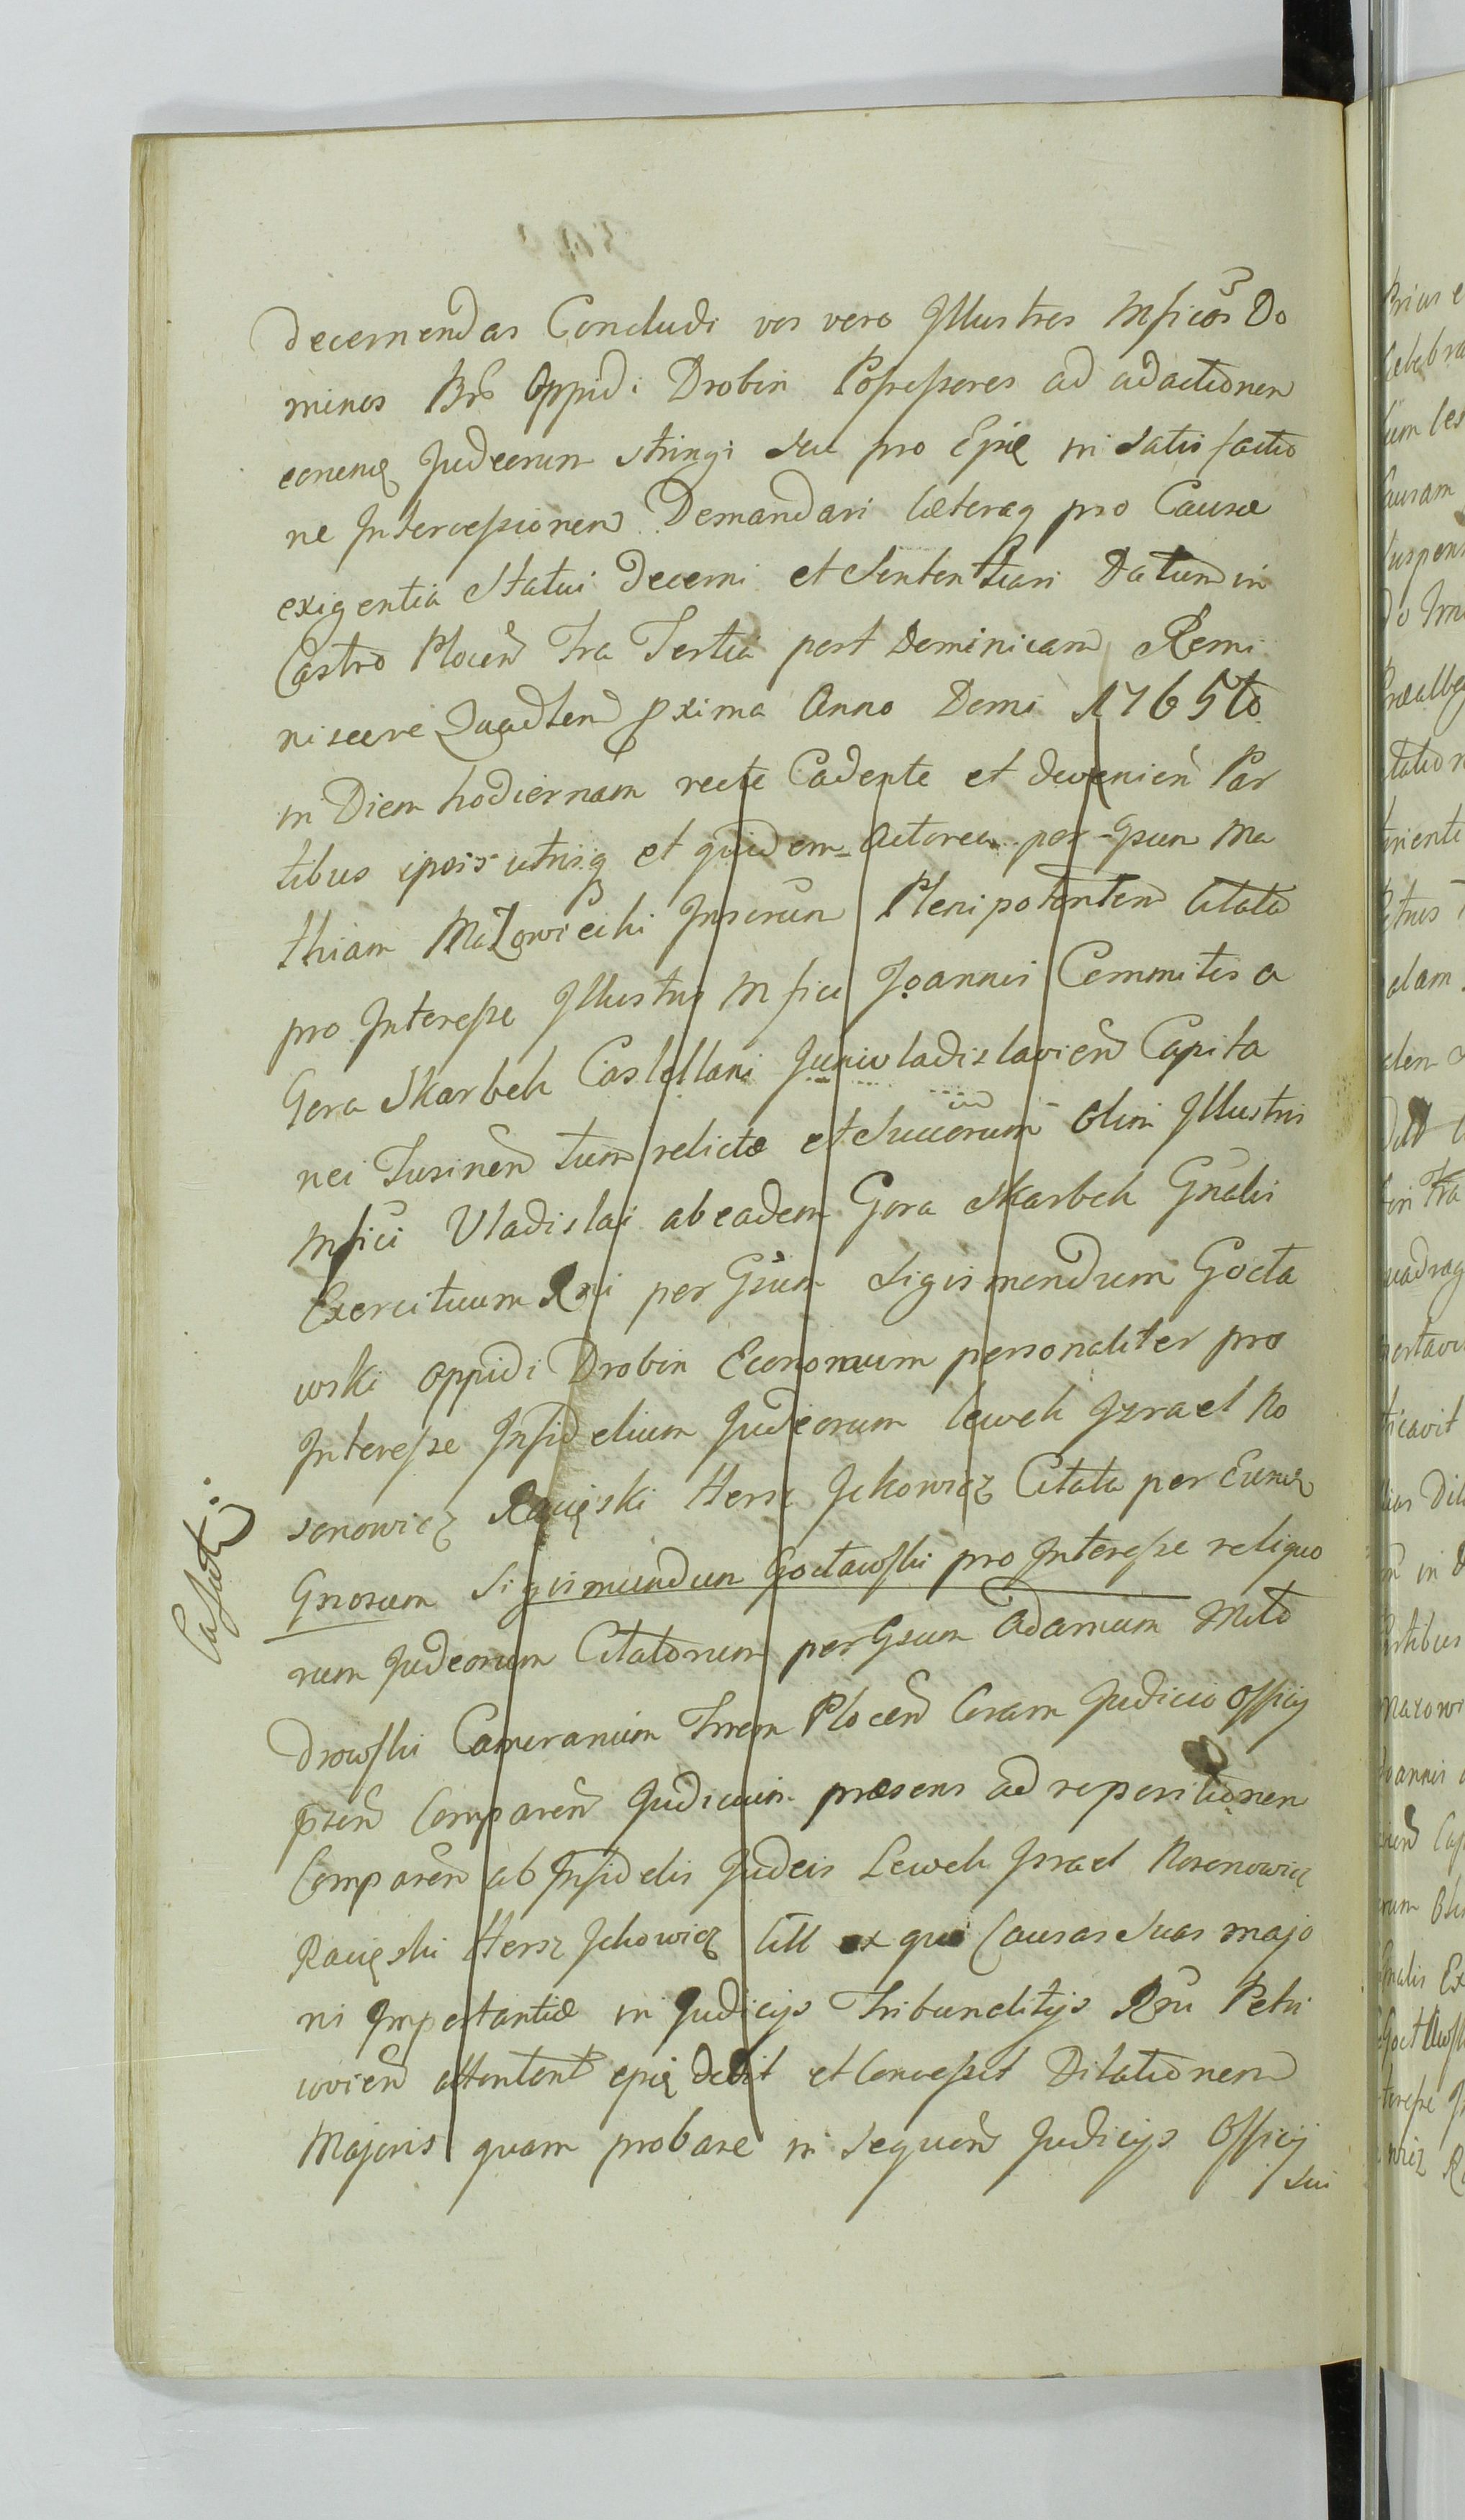 decernendas Concludi vos vero Illustres Mficos Do
minos Brs Oppidi Drobin Possessores ad adactionem
eorumq Judeorum stringi seu pro Epiq in satisfactio
ne Intercessionem Demandari Cæteraq pro Causæ
exigentia Statui Decerni et Sententiari Datum in
Castro Plocen Fra Tertia post Dominicam Remi
niscere Quadlem pxima Anno Domi 1765to
in Diem hodiernam recte Cadente et devenien Par
tibus ipsis utrisq et quidem Actorea per Gsum Ma
thiam Mazowiecki Juratum Plenipotentem Citata
pro Interesse Illustris Mfici Joannis Committis a
Gora Skarbek Castellani Juniwladislavien Capita
nei Tusinen tum relictæ et Succorum Olim Illustris
Mfici Vladislai ab eadem Gora Skarbek Gnalis
Exercituum Rni per Gsum Sigismundum Gocta
wski oppidi Drobin Economum personaliter pro
Interesse Infidelium Judeorum Lewek Izrael Ro
senowicz Racięski Hersz Ickowicz Citata per Eunq
Gnosum Sigismundum Goctawski pro Interesse reliquo
rum Judeorum Citatorum per Gsum Adamum Modo
drowski Camerarium Trrem Plocen Coram Judicio Officij
psen Comparen Judicium præsens ad repositionem
Comparen ab Infidelis Judeis Lewek Israel Rosenowicz
Racięski Hersz Ickowicz Citt ex quo Causas Suas majo
ris Importantiæ in Judicijs Tribunalitijs Rni Petri
covien attentent epiq dedit et Concessit Dilationem
Majoris quam probare in sequen Judicijs Officij
sui
Cassati